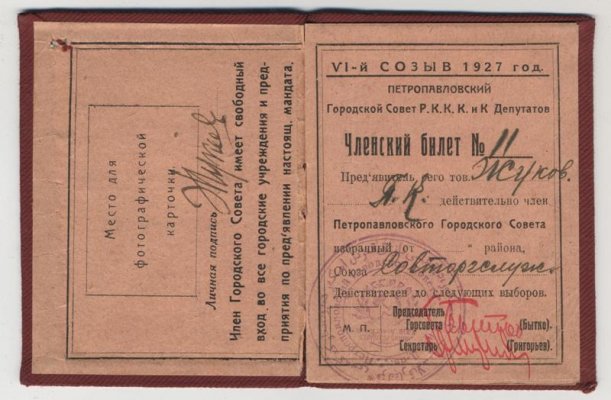 Место для
фотографической
карточки.
Личная подпись Жуков
Член Городского Совета имеет свободный
вход во все городские учреждения и пред-
приятия по пред'явлении настоящ. мандата.
VI-й СОЗЫВ 1927 год.
ПЕТРОПАВЛОВСКИЙ
Городской Совет Р. К. К. К. и К Депутатов
Членский билет № 11
Пред'явитель сего тов. Жуков.
П. К. действительно член
Петропавловского Городского Совета
избранный от района,
Союза Совторгслуж.
Действителен до следующих выборов.
Председатель
Горсовета (Бытко).
М. П.
Секретарь (Григорьев).